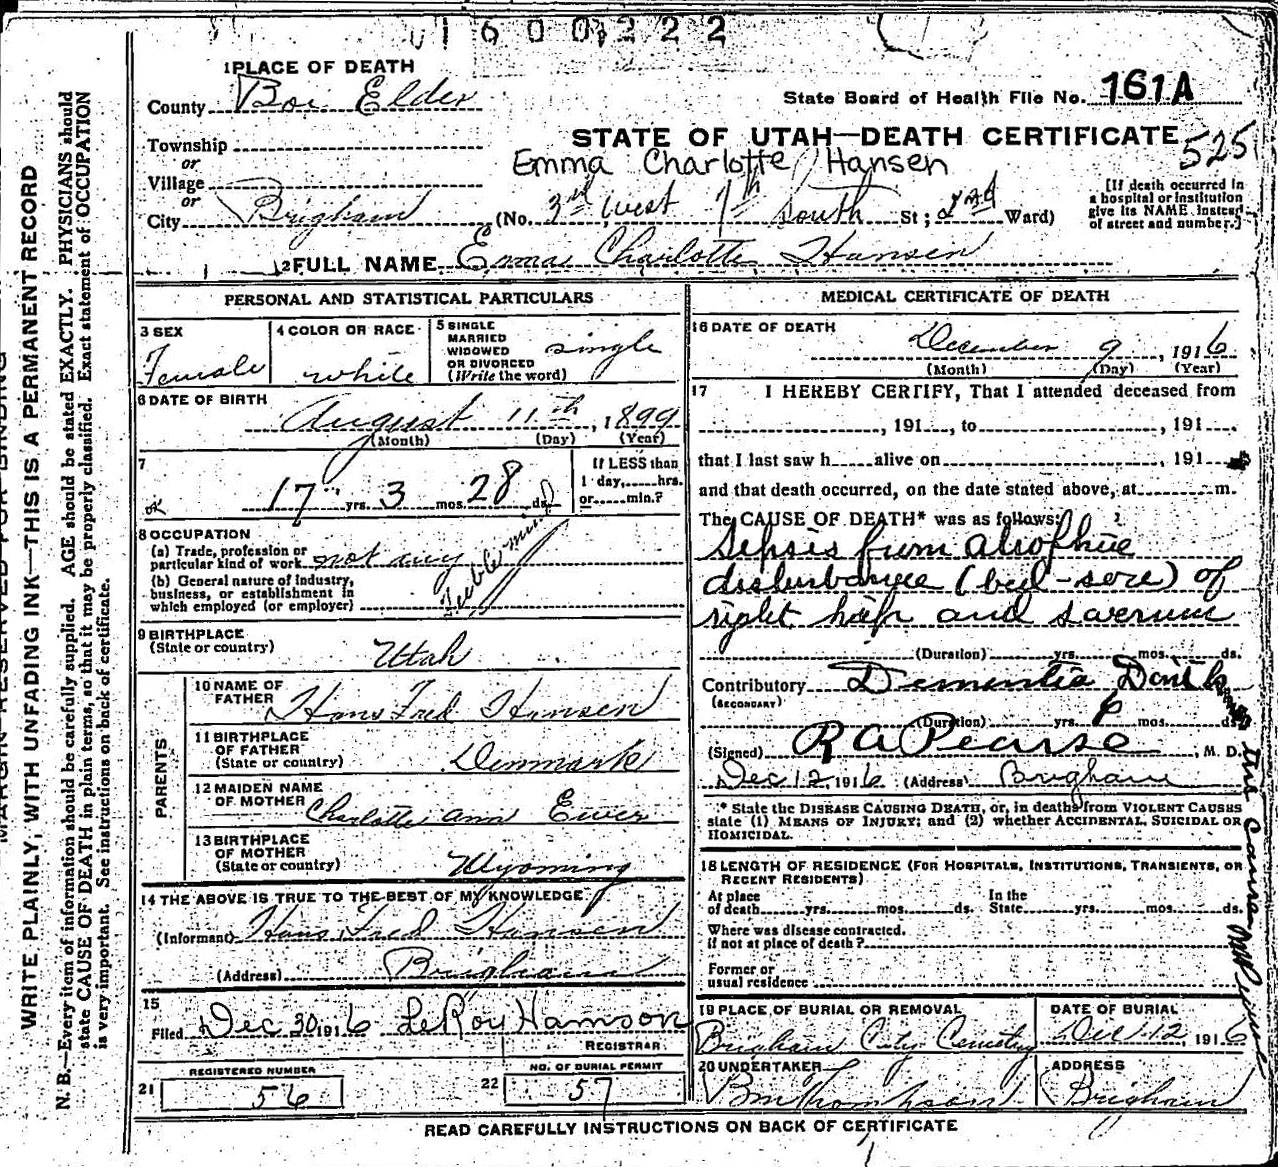 1600222
1 PLACE OF DEATH
County Box Elder
State Board of Health File No. 161A
Township
or
STATE OF UTAH—DEATH CERTIFICATE
525
Emma Charlotte Hansen
Village
or
City Brigham (No. 3rd West 7th South St; 2nd Ward)
[If death occurred in
a hospital or institution
give its NAME instead
of street and number.]
2 FULL NAME Emma Charlotte Hansen
PERSONAL AND STATISTICAL PARTICULARS
3 SEX
Female
4 COLOR OR RACE
white
5 SINGLE
MARRIED
WIDOWED
OR DIVORCED
(Write the word)
single
6 DATE OF BIRTH
August 11th, 1899
(Month) (Day) (Year)
7
17 yrs. 3 mos. 28 ds.
If LESS than
1 day,.....hrs.
or......min.?
8 OCCUPATION
(a) Trade, profession or
particular kind of work not any
(b) General nature of industry,
business, or establishment in
which employed (or employer)
Feeble mind
9 BIRTHPLACE
(State or country)
Utah
PARENTS
10 NAME OF
FATHER
Hans Fred Hansen
11 BIRTHPLACE
OF FATHER
(State or country)
Denmark
12 MAIDEN NAME
OF MOTHER
Charlotte Ann
13 BIRTHPLACE
OF MOTHER
(State or country)
Wyoming
14 THE ABOVE IS TRUE TO THE BEST OF MY KNOWLEDGE
(Informant) Hans Fred Hansen
(Address) Brigham
15
Filed Dec 30, 1916 LeRoy Hamson
REGISTRAR
21 REGISTERED NUMBER
56
22 NO. OF BURIAL PERMIT
57
MEDICAL CERTIFICATE OF DEATH
16 DATE OF DEATH
December 9, 1916
(Month) (Day) (Year)
17 I HEREBY CERTIFY, That I attended deceased from
, 191 , to , 191
that I last saw h alive on , 191
and that death occurred, on the date stated above, at m.
The CAUSE OF DEATH* was as follows:
Sepsis from
disturbance (bed-sore) of
right hip and sacrum
(Duration) yrs. mos. ds.
Contributory Dementia
(SECONDARY)
(Duration) yrs. 6 mos. ds.
(Signed) R A Pearse, M. D.
Dec 12, 1916 (Address) Brigham
* State the DISEASE CAUSING DEATH, or, in deaths from VIOLENT CAUSES
state (1) MEANS OF INJURY; and (2) whether ACCIDENTAL, SUICIDAL OR
HOMICIDAL.
18 LENGTH OF RESIDENCE (FOR HOSPITALS, INSTITUTIONS, TRANSIENTS, OR
RECENT RESIDENTS)
At place
of death yrs. mos. ds.
In the
State yrs. mos. ds.
Where was disease contracted,
if not at place of death?
Former or
usual residence
19 PLACE OF BURIAL OR REMOVAL
Brigham City Cemetry
DATE OF BURIAL
Dec 12 1916
20 UNDERTAKER
ADDRESS
Brigham
READ CAREFULLY INSTRUCTIONS ON BACK OF CERTIFICATE
MARGIN RESERVED FOR BINDING
WRITE PLAINLY, WITH UNFADING INK—THIS IS A PERMANENT RECORD
N. B.—Every item of information should be carefully supplied. AGE should be stated EXACTLY. PHYSICIANS should
state CAUSE OF DEATH in plain terms, so that it may be properly classified. Exact statement of OCCUPATION
is very important. See instructions on back of certificate.